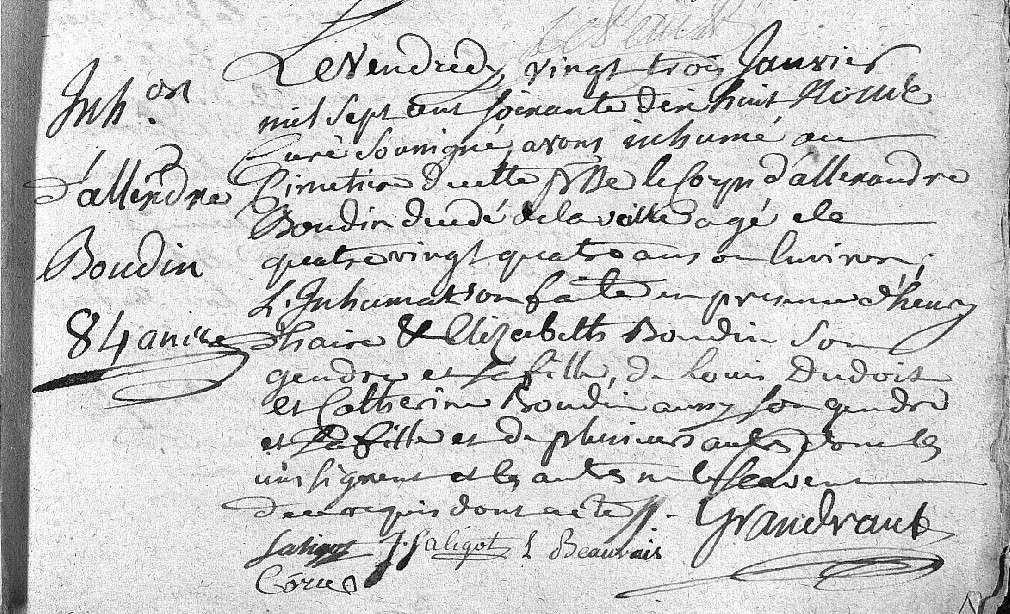 Inh.on
d'allexdre
Boudin
84 ans
Le Vendredy vingt trois Janvier
mil sept cent soixante dix huit Nous
Curé soussigné, avons inhumé au
Cimetiere de cette psse le Corps d'allexandre
Boudin decedé de la veille agé de
quatre vingt quatre ans ou Environ ;
L'Inhumation faite en presence d'henry
& Elizabeth Boudin son
gendre et sa fille, de louis Dudoit
et Catherine Boudin aussy son gendre
et sa fille et de plusieurs autres dont les
uns signent et les autres ne le scavent
de ce requis dont acte //. Grandvaut
Saligot J. Saligot L Beauvais